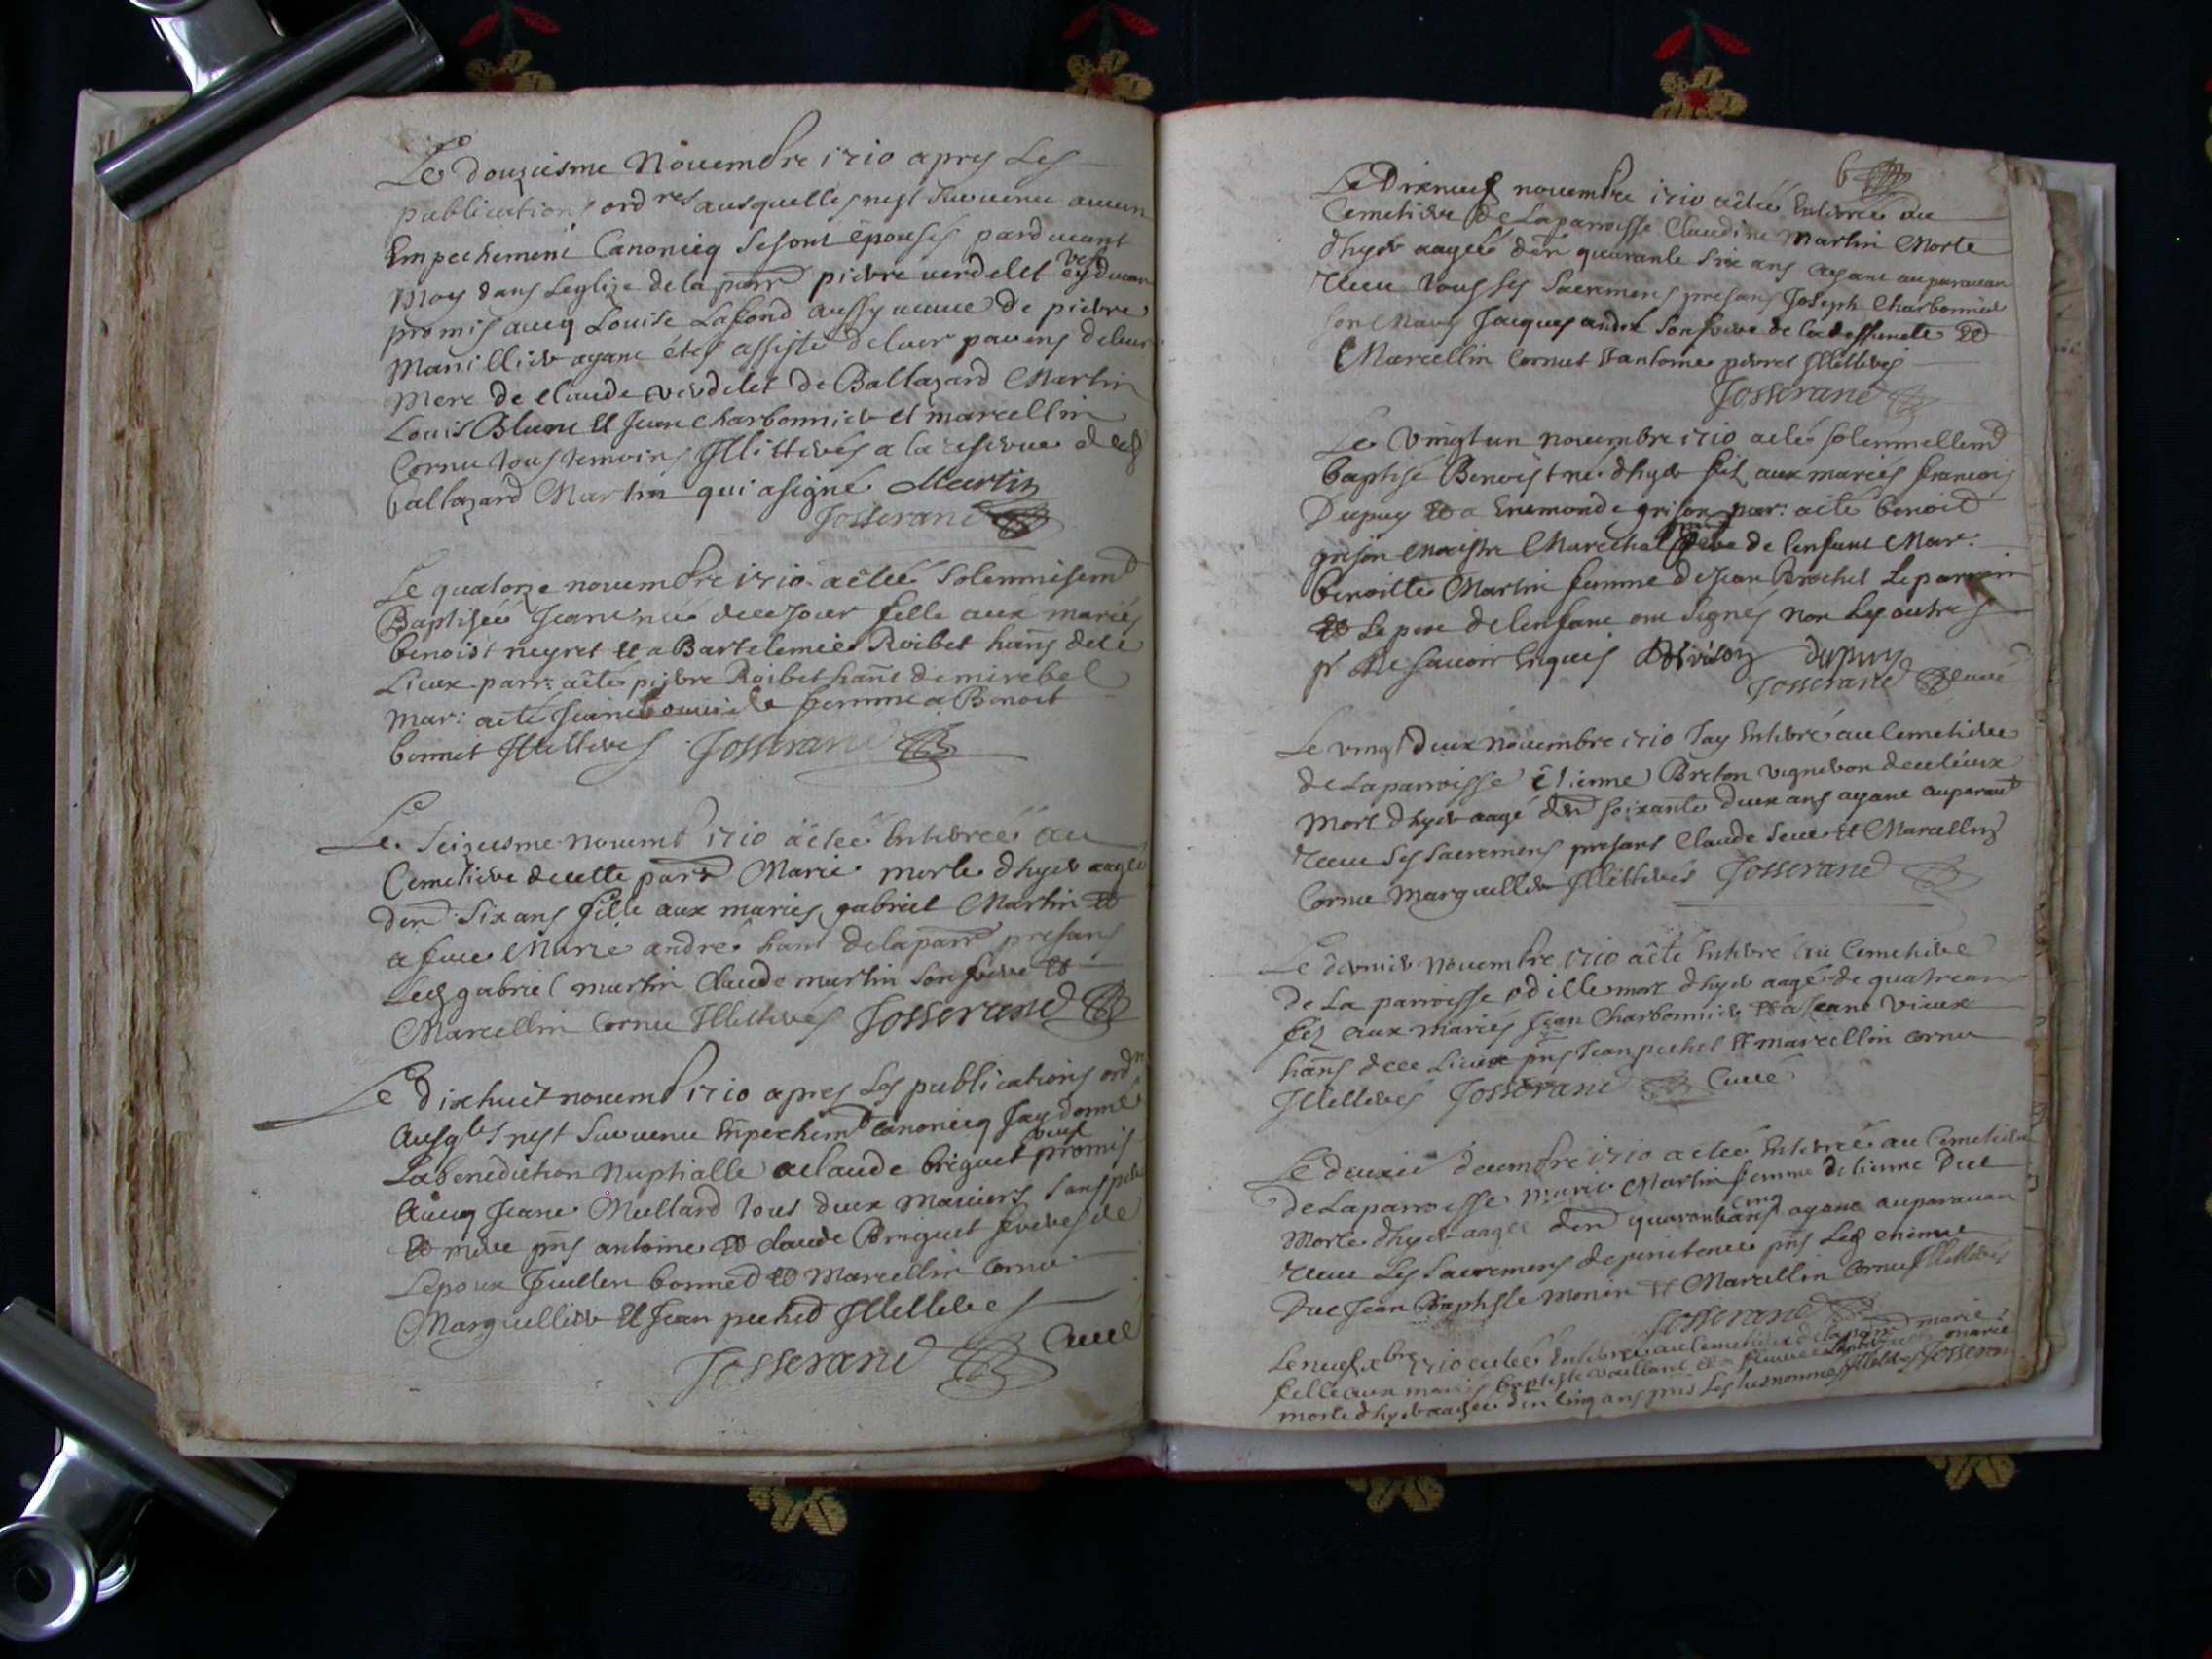 Le douziesme Nouembre 1710 apres Les
publications ordres ausquelles nest suruenu aucun
Empechement Canonicq se sont épousés parduant
Moy dans Leglize de la parr pierre verdelet vef
promis aueq Louise Lafond aussy veuue de pierre
Manillier ayant étés assisté de leur parens de leur
Mere de Claude verdelet de Baltazard Martin
Louis Blanc et Jean Charbonnier et marcellin
Cornu tous temoins Illitterés a la reserue dud
baltazard Martin qui a signé Martin
Josserand
Le quatorze nouembre 1710 a été solemnisemt
Baptisée Jeane née de ce Jour fille aux mariés
benoist neyret et a Bartelemie Roibet hans de ce
Lieux parr: a été pierre Roibet hant de mirebel
Mar: a été Jeane femme a Benoit
bonnet Illitterés Josserand
Le Seiziesme nouemb 1710 a étée Enterrée au
Cemetiere de cette parr Marie morte dhyer aagée
denn Six ans fille aux mariés gabriel Martin et
a feue Marie andré hant de la parr presans
Led gabriel martin Claude martin son frere et
Marcellin Cornu Illitterés Josserand
Le dixhuit nouemb 1710 apres Les publications ordres
Ausqles nest suruenu Empechemt Canonicq Jay donné
La benediction Nuptialle a claude briguet veuf promis
Aueq Jeane Mellard tous deux sans pere
et mere pns antoine et claude Briguet freres de
Lepoux bonned et Marcellin Cornu
Marguellier et Jean pechet Illitterés
Josserand Curé
6
Le Dixneuf nouembre 1710 a étée Enterrée au
Cemetiere de La parroisse Claudine Martin Morte
dhyer aagée denn quarante six ans ayant auparauan
receu tous ses sacremens presans Joseph Charbonnier
son Mary Jacques andré son frere de la deffuncte et
Marcellin Cornut et antoine peyret Illitterés
Josserand
Le Vingt un nouembre 1710 a été solennellemt
baptisé Benoist né dhyer filz aux mariés francois
Dupuy et a Enemonde grison par: a été benoit
grison Maistre Marechal de lenfant Mar:
benoitte Martin femme de Jean Brochet Le parrein
et Le pere de lenfant ont signés non Les autres
pr ne sauoir Enquis Grison dupuy
Josserand Curé
Le vingt deux nouembre 1710 Jay Enterré au Cemetiere
de La parroisse étienne Breton vigneron de ce lieux
Mort dhyer aagé denn soixante deux ans ayant auparaut
receu ses sacremens presans Claude Seue et Marcellin
Cornu Marguellier Illitterés Josserand
Le dernier nouembre 1710 a été Enterré au Cemetiere
de La parroisse odille mort dhyer aagé de quatre an
filz aux mariés Jean Charbonnier et a Jeane vieux
hans de ce Lieux pns Jean pechet et marcellin cornu
Illitterés Josserand Curé
Le deuxie decembre 1710 a étée Enterrée au Cemetiere
de La parroisse marie Martin femme détienne Duc
Morte dhyer aagée denn quarante cinq ans ayant auparauan
receu Les Sacremens de penitence pns Led etienne
Duc Jean Baptiste Monin et Marcellin Cornu Illitterés
Josserand
Le neuf xbre 1710 a étée Enterrée au Cemetiere de la parr marie
fille aux mariés baptiste et a marie
morte dhyer aagée denn Cinq ans pns Les susnommés Illitterés Josserand